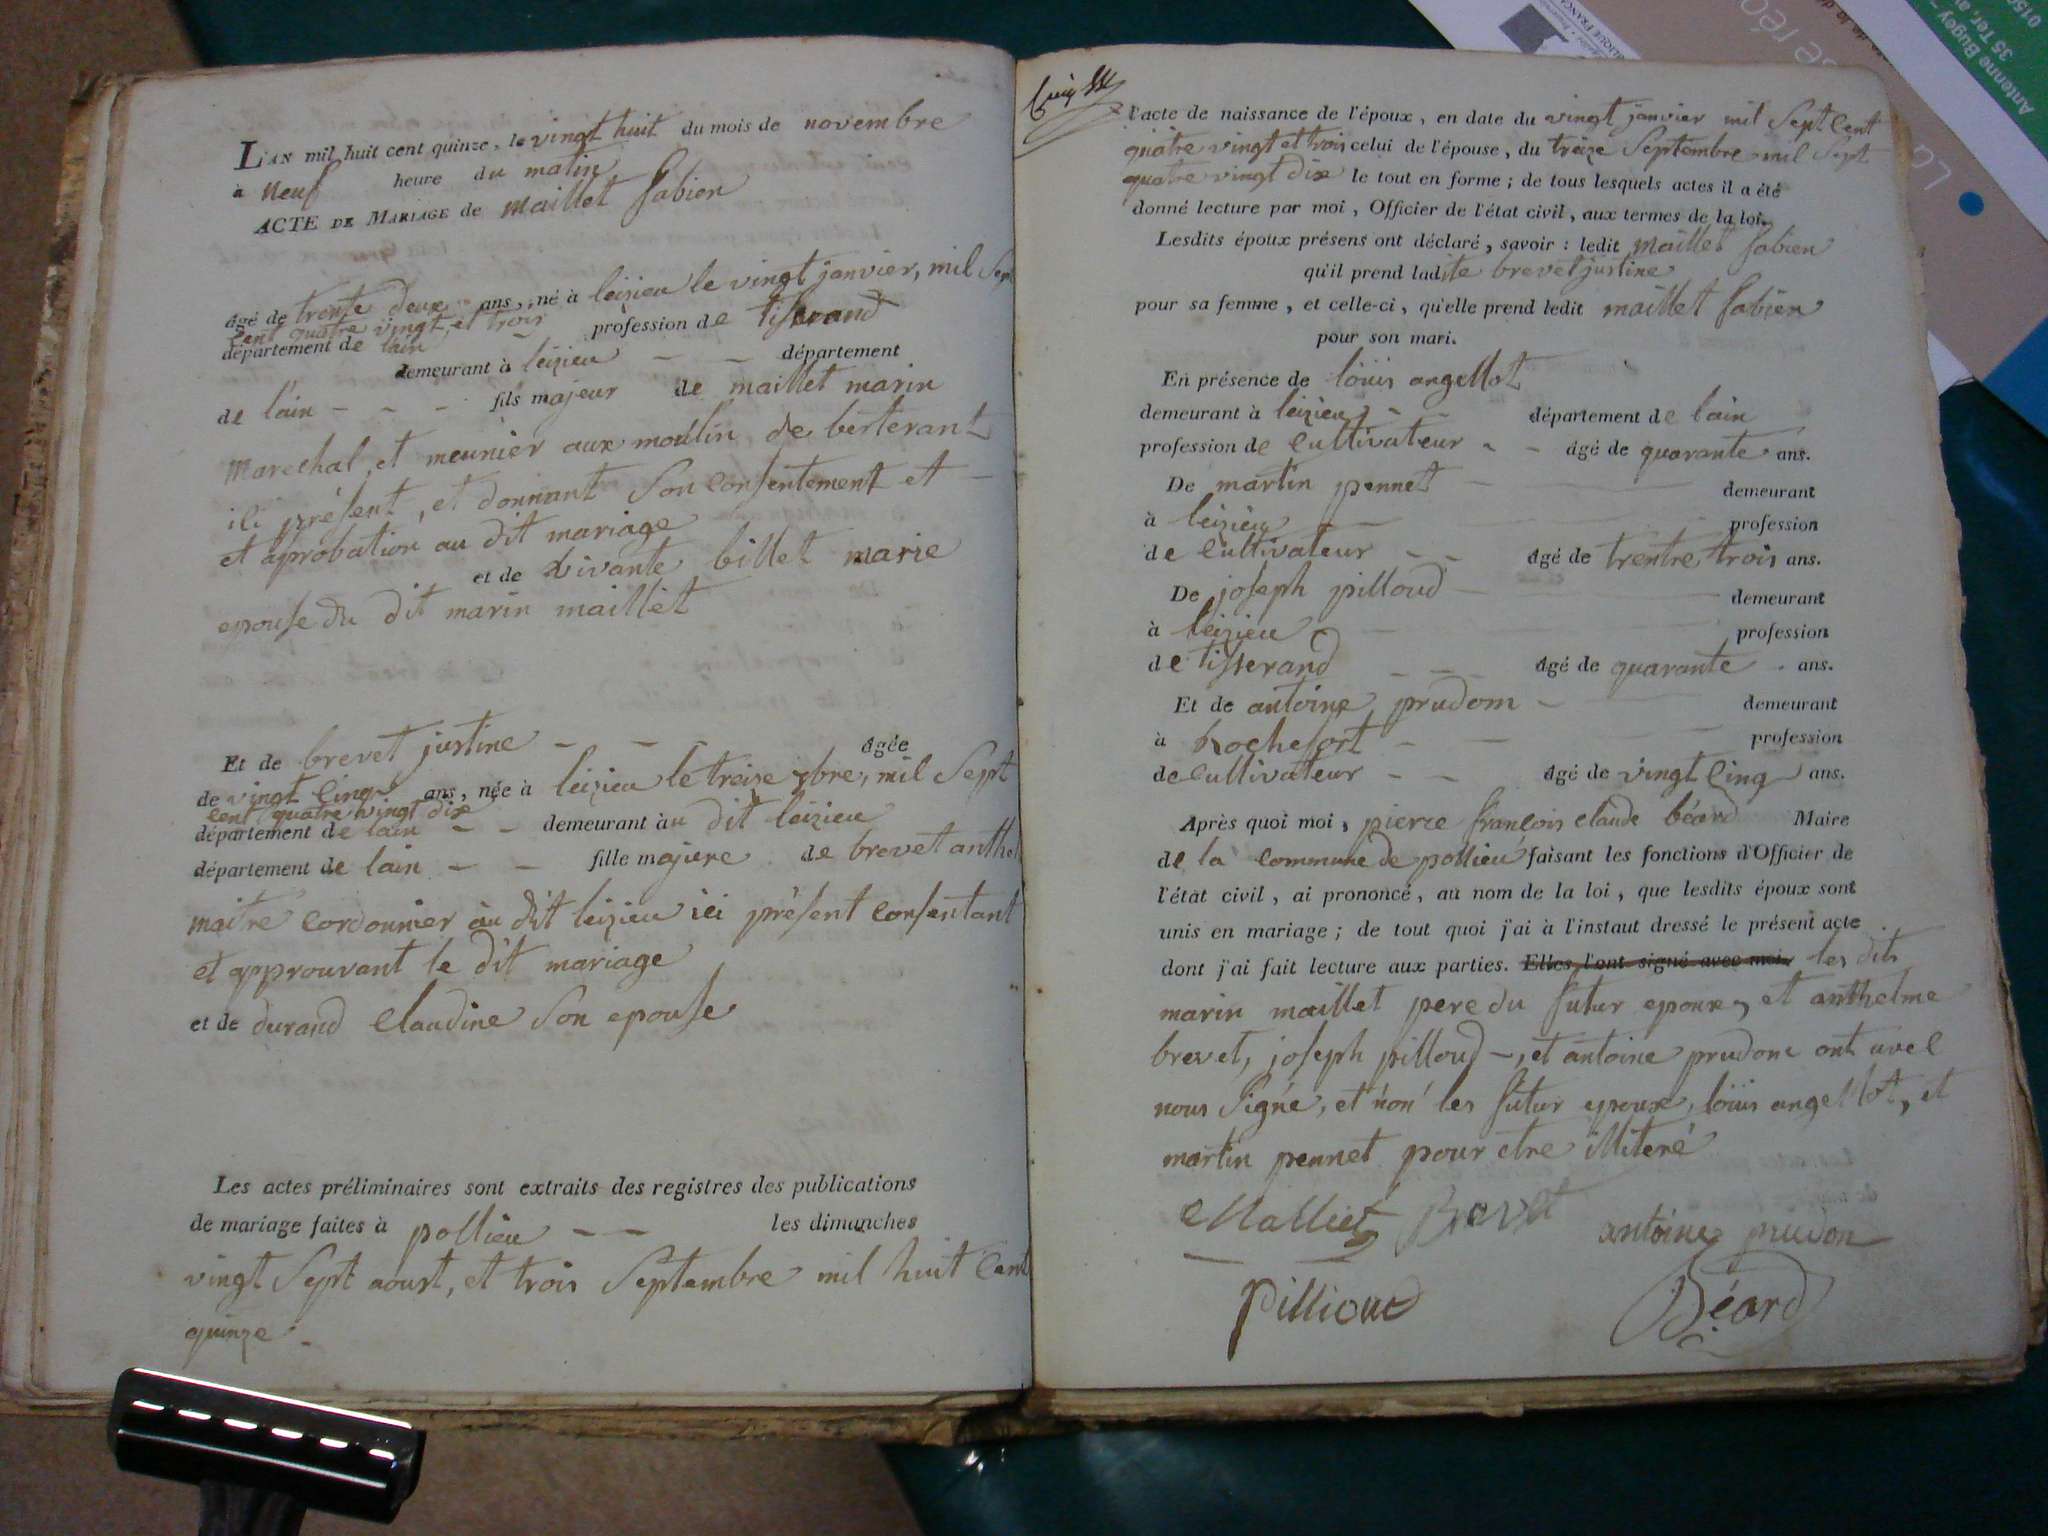 L'AN mil huit cent quinze, le vingt huit du mois de novembre
à neuf heure du matin
ACTE DE MARIAGE de maillet fabien
âgé de trente deux ans, né à leizieu le vingt janvier, mil sept
cent quatre vingt et trois
département de lain profession de tisserand
demeurant à leizieu département
de lain fils majeur de maillet marin
marechal, et meunier aux moulin de berterant
ili présent, et donnant son consentement et
et approbation au dit mariage
et de vivante billet marie
epouse du dit marin maillet
Et de brevet justine âgée
de vingt cinq ans, née à leizieu le treize 7bre, mil sept
cent quatre vingt dix
département de lain demeurant àu dit leizieu
département de lain fille majeure de brevet anthel
maitre cordonnier àu dit leizieu ici présent consentant
et approuvant le dit mariage
et de durand claudine son epouse
Les actes préliminaires sont extraits des registres des publications
de mariage faites à pollieu les dimanches
vingt sept aoust, et trois septembre mil huit cent
quinze
l'acte de naissance de l'époux, en date du vingt janvier mil sept cent
quatre vingt et trois celui de l'épouse, du treize septembre mil sept
quatre vingt dix le tout en forme ; de tous lesquels actes il a été
donné lecture par moi, Officier de l'état civil, aux termes de la loi.
Lesdits époux présens ont déclaré, savoir : ledit maillet fabien
qu'il prend ladite brevet justine
pour sa femme, et celle-ci, qu'elle prend ledit maillet fabien
pour son mari.
En présence de löuis angellot
demeurant à leizieu département de lain
profession de cultivateur âgé de quarante ans.
De martin pennet demeurant
à leizieu profession
de cultivateur âgé de trentre trois ans.
De joseph pilloud demeurant
à leizieu profession
de tisserand âgé de quarante ans.
Et de antoine prudom demeurant
à Rochefort profession
de cultivateur âgé de vingt cinq ans.
Après quoi moi, pierre françois claude béard Maire
de la commune de pollieu faisant les fonctions d'Officier de
l'état civil, ai prononcé, au nom de la loi, que lesdits époux sont
unis en mariage ; de tout quoi j'ai à l'instaut dressé le présent acte
dont j'ai fait lecture aux parties. Elles l'ont signé avec moi. les dits
marin maillet pere du futur epoux, et anthelme
brevet, joseph pilloud, et antoine prudom ont avec
nous signé, et non les futur epoux, löuis angellot, et
martin pennet pour etre illiteré
Malliet Brevet antoine prudon
pillioud Béard
Antenne Bugey –
35 Ter, av